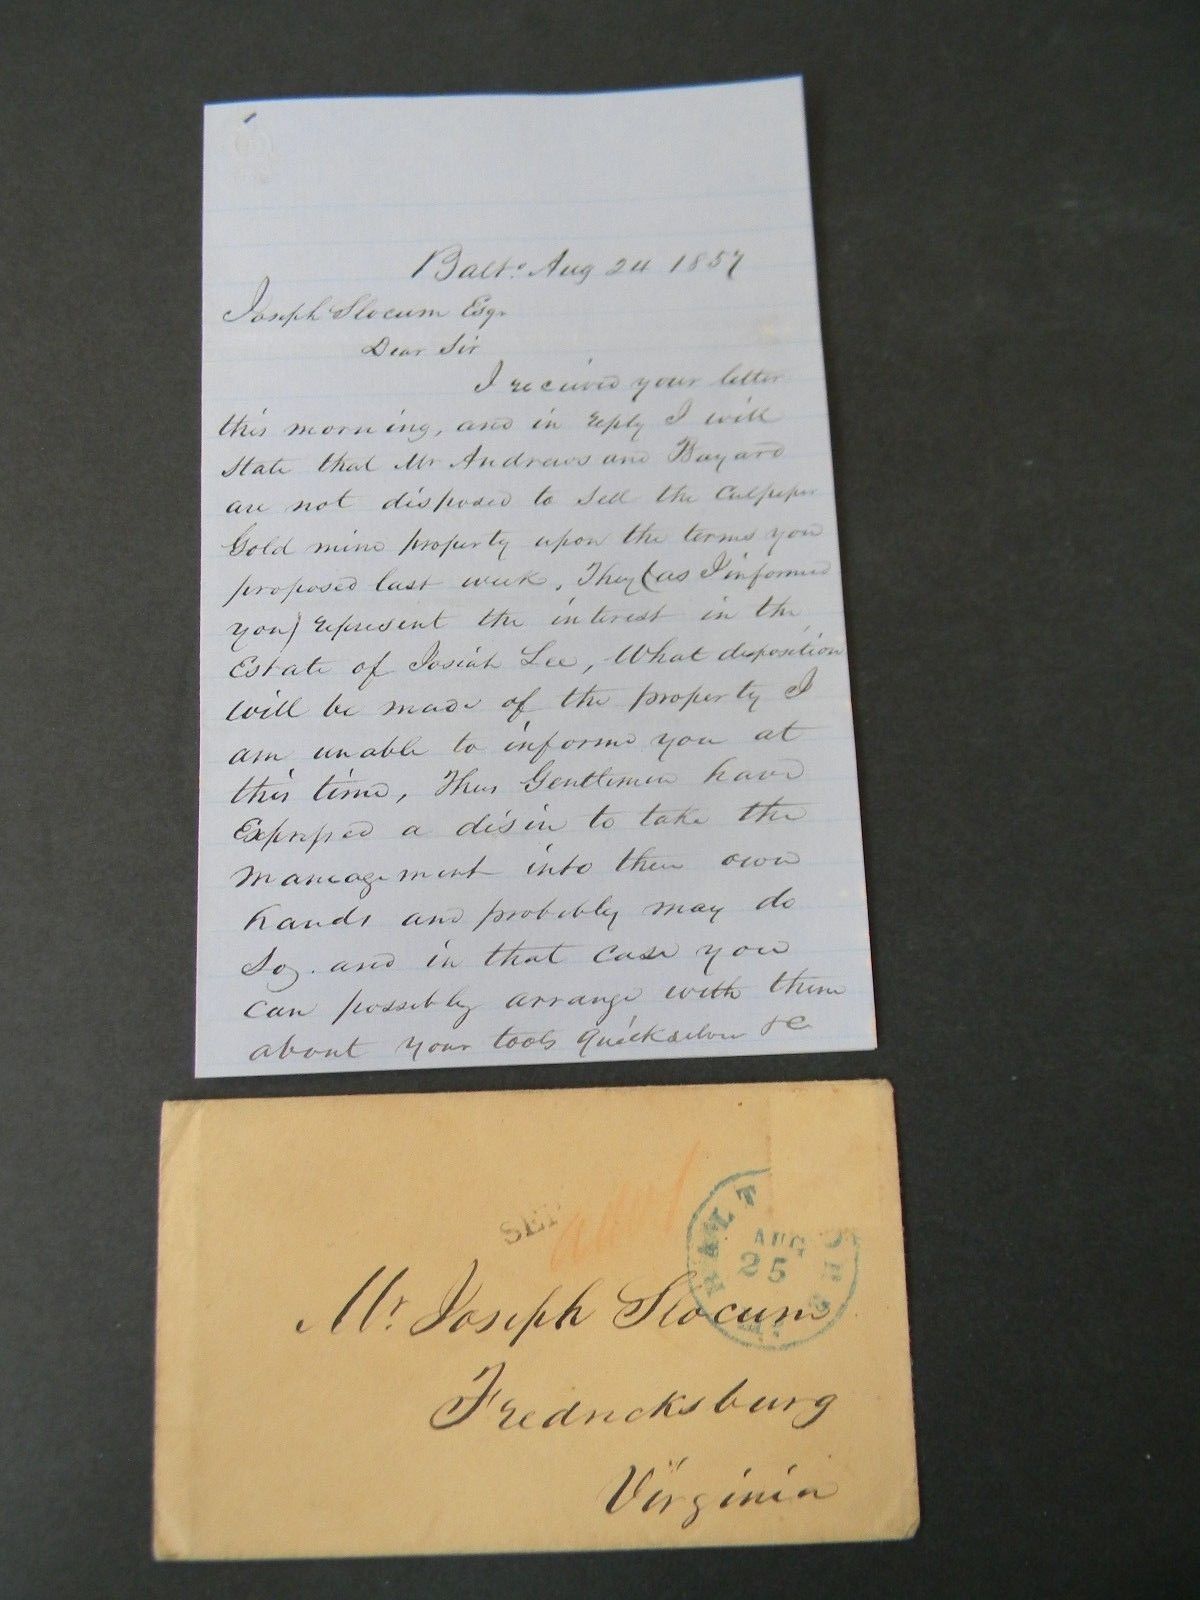 Balto. Aug 24 1857
Joseph Slocum Esqr
Dear Sir
I recieved your letter
this morning, and in reply I will
state that Mr Andrews and Bayard
are not disposed to sell the Culpeper
Gold mine property upon the terms you
proposed last week. They (as I informed
you) represent the interest in the
Estate of Josiah Lee, What disposition
will be made of the property I
am unable to inform you at
this time, Thes Gentlemen have
Expressed a desire to take the
management into their own
hands and probibly may do
So, and in that case you
can possibly arrange with them
about your tools Quicksilver &C
BALT
AUG
25
Mr. Joseph Slocum
Fredricksburg
Virginia